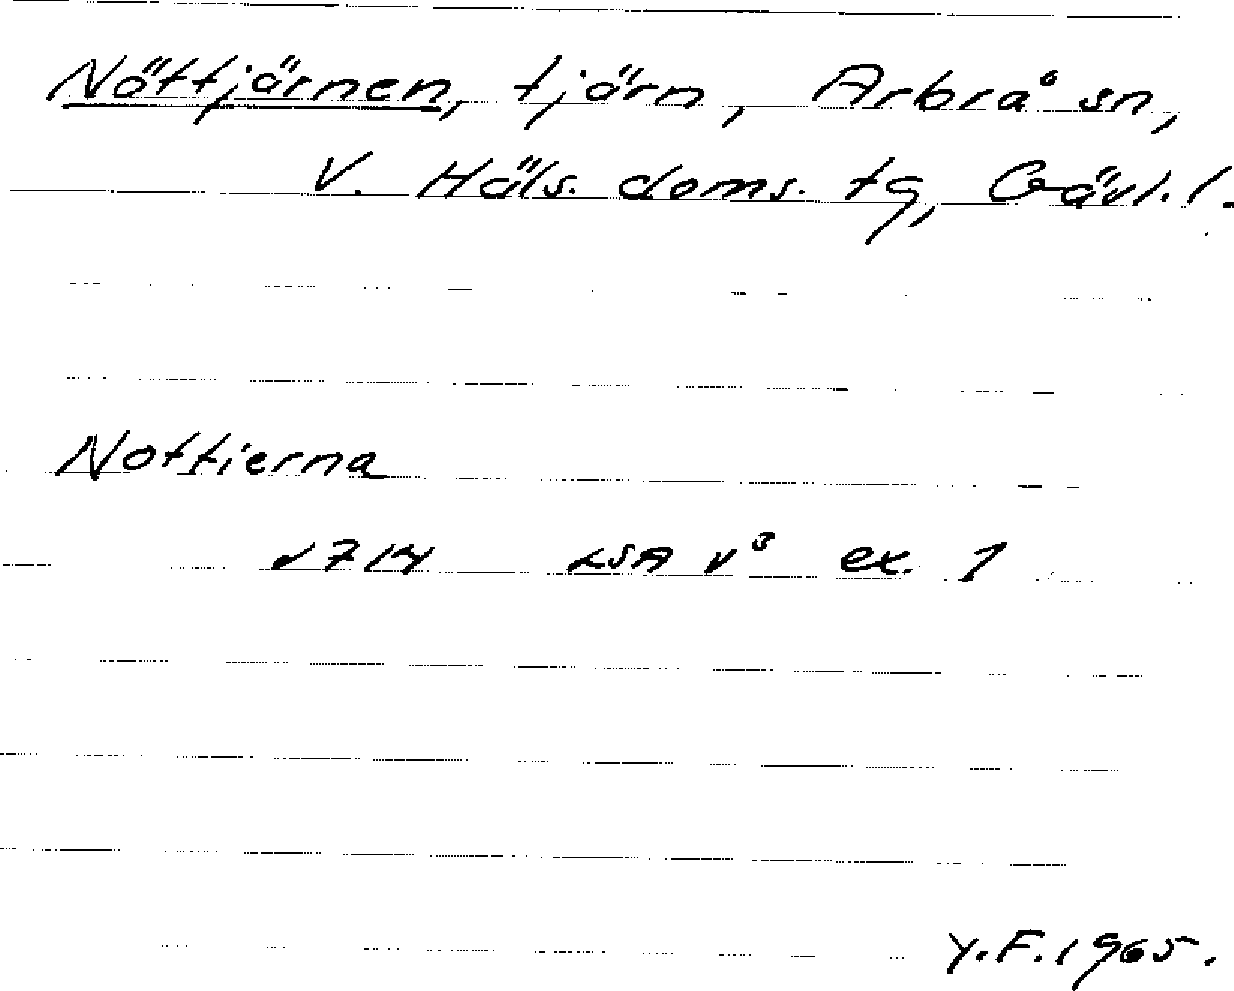 Nöttjärnen, tjärn, Arbrå sn,
V. Häls. doms. tg, Gävl. l.
Nottierna
1714 LSA v³ ex. 1
Y.F. 1965.